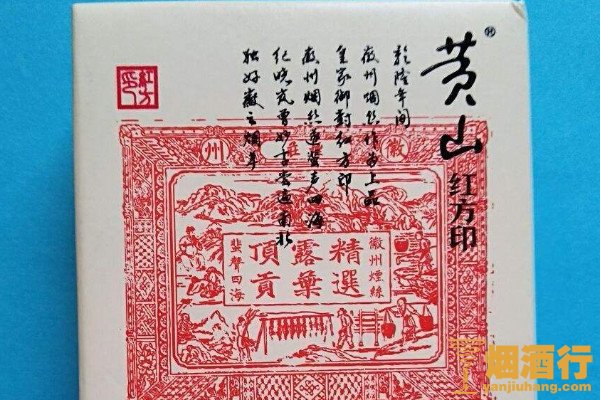 黄山®
红方印
乾隆年间
徽州烟丝作为上品
皇家御封红方印
徽州烟丝遂蜚声四海
纪晓岚曾妙言云遍南北
独好徽之烟草
紅方印
徽 州
徽州煙絲
精選
露葉
頂貢
蜚聲四海
烟酒行
yanjiuhang.com